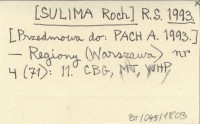 [SULIMA Roch] R.S. 1993.
[Przedmowa do: PACH A. 1993.]
— Regiony (Warszawa) nr
4 (71): 11. CBG, MT, WHP,
BT/045/1803